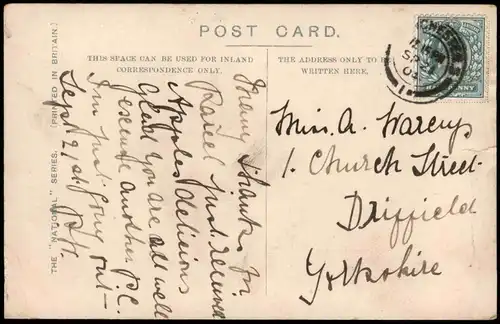 POST CARD.
THIS SPACE CAN BE USED FOR INLAND
CORRESPONDENCE ONLY.
THE ADDRESS ONLY TO BE
WRITTEN HERE.
THE "NATIONAL" SERIES. [PRINTED IN BRITAIN.]
Many thanks for
Parcel just received
Apples delicious
Glad you are all well
Yes send another P.C.
I'm just going out—
Sept 21st
Miss. A. Wareup
1. Church Street.
Driffield
Yorkshire
CHESTER
SP 21